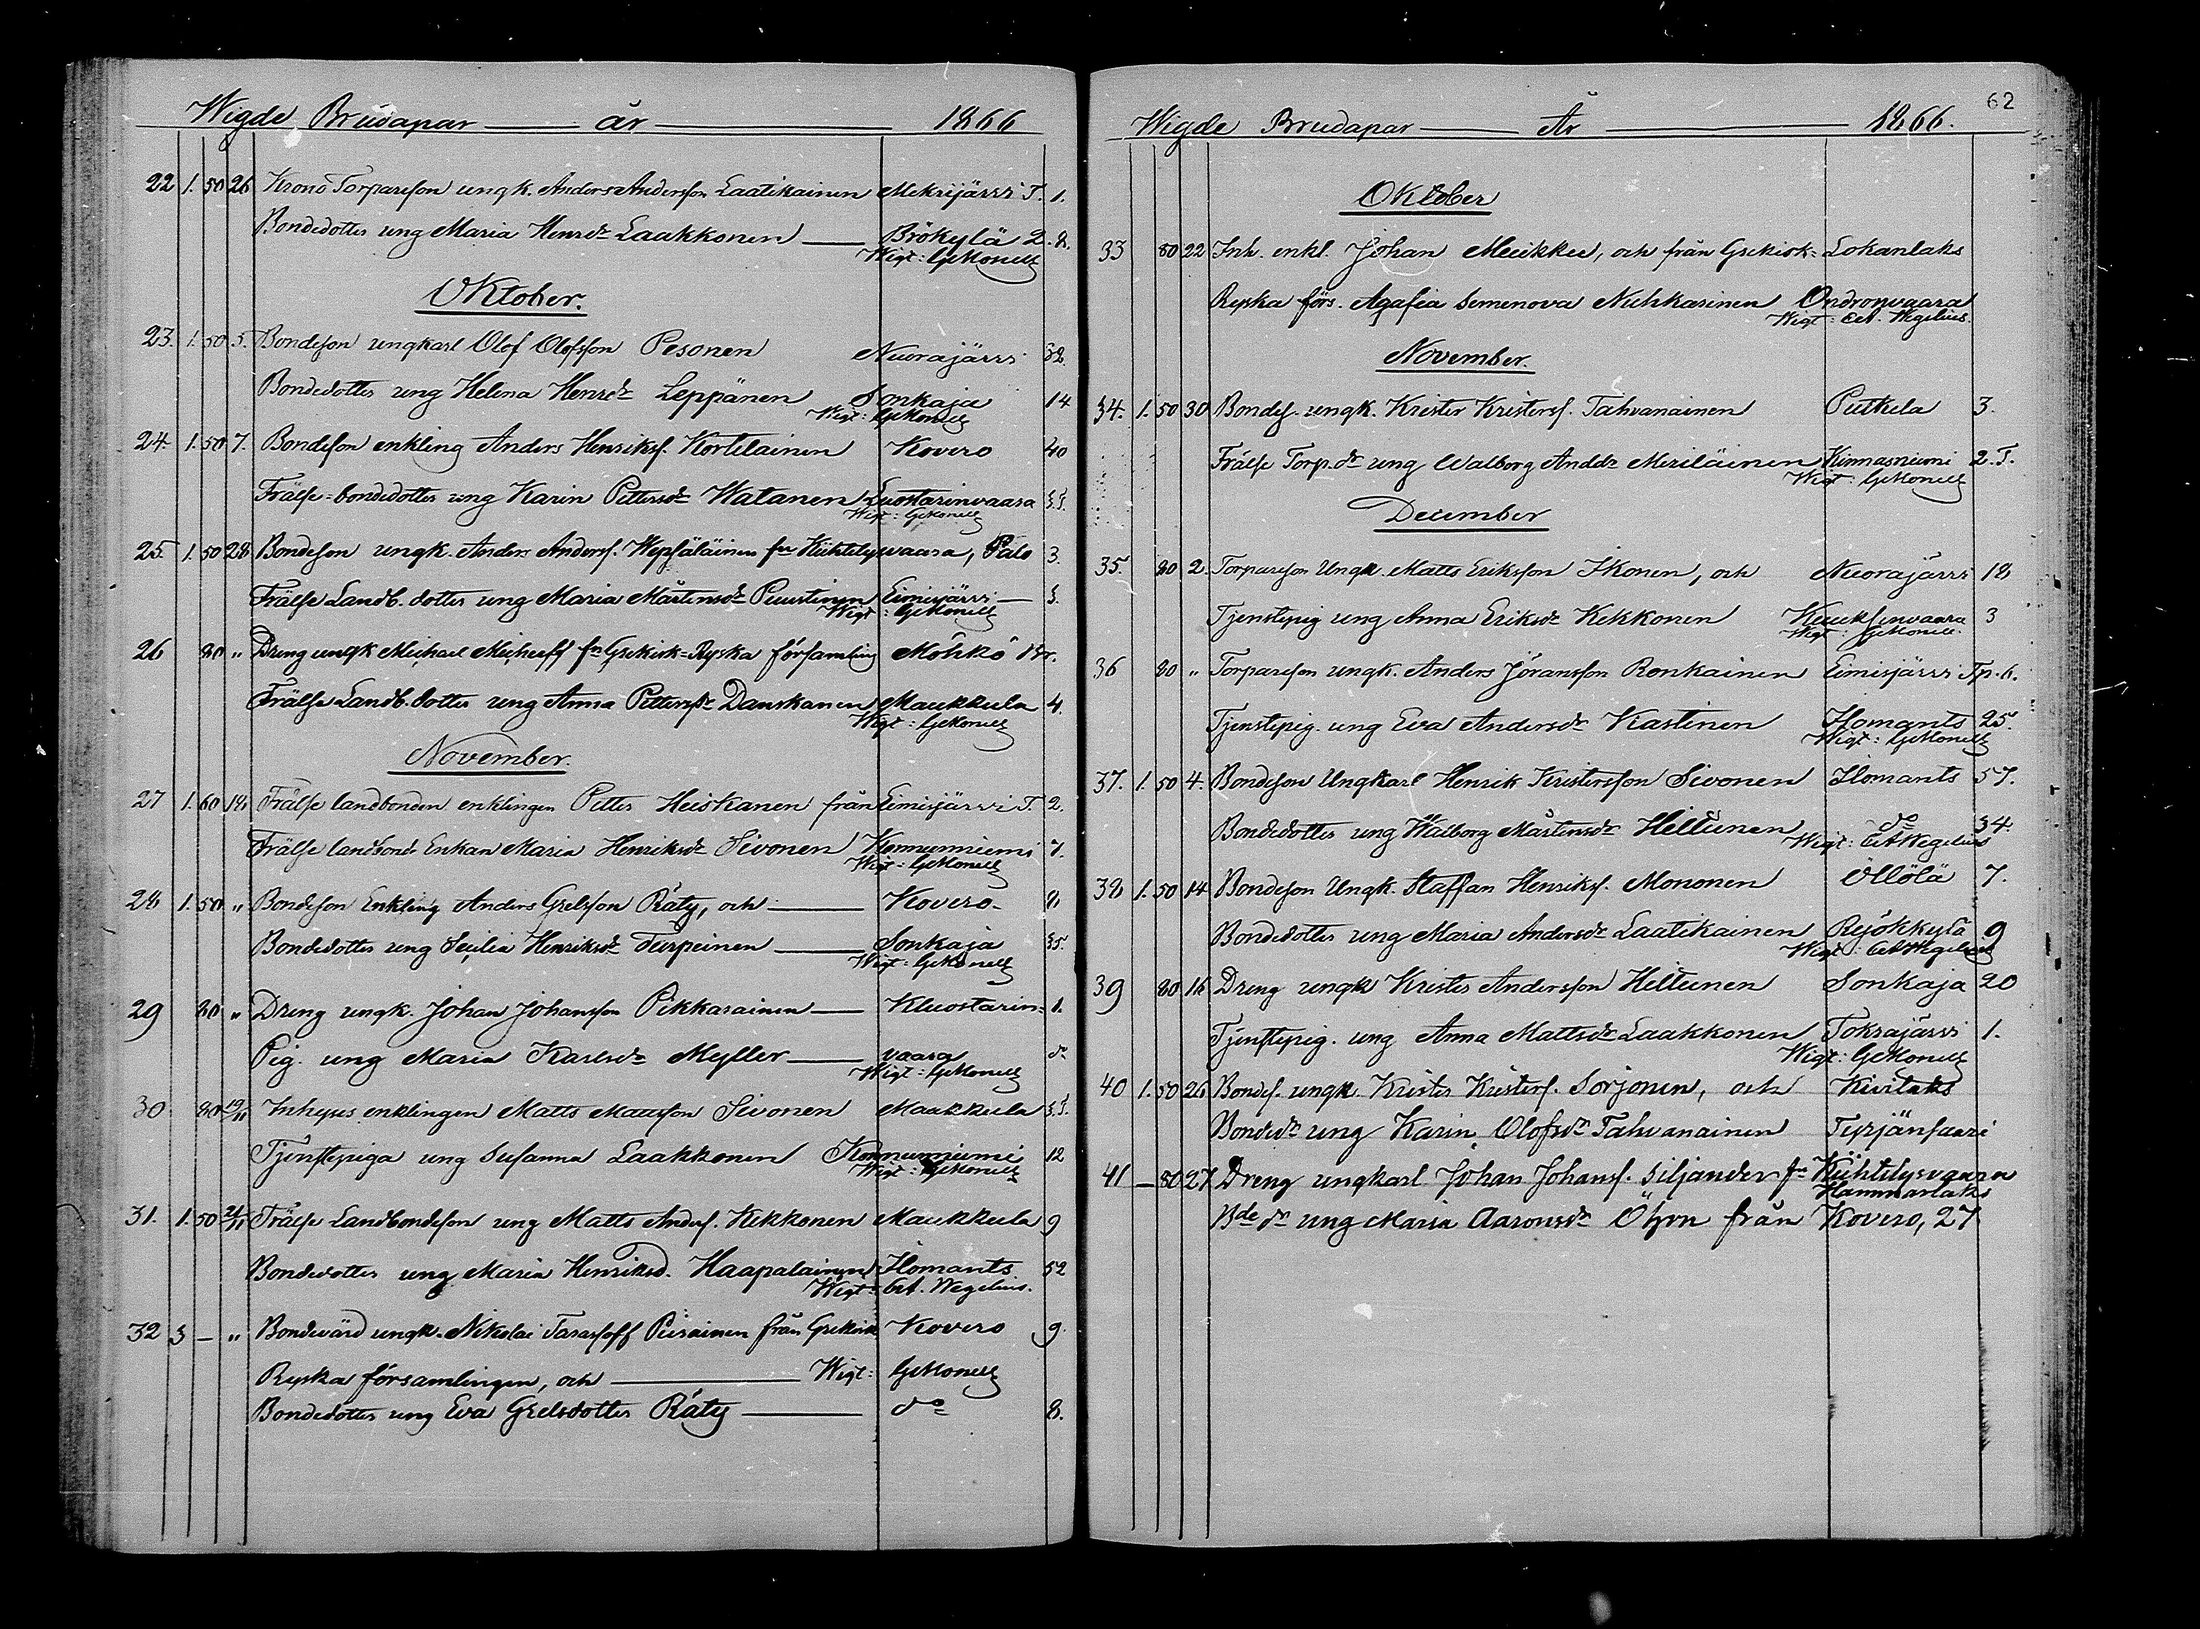 Wigde Brudapar år 1866
22 1. 50 26 Krono Torpareson ungk. Anders Andersson Laatikainen Mekrijärvi T. 1.
Bondedotter ung Maria Henrsdr Laakkonen Brökylä 2. 8.
Wigt: GeMonell
Oktober.
23. 1. 50 5. Bondeson ungkarl Olof Olofsson Pesonen Nuorajärvi 32.
Bondedotter ung Helena Henrsdr Leppänen Sonkaja 14
Wigt: GeMonell
24. 1. 50 7. Bondeson enkling Anders Henriksf. Kortelainen Kovero 40
Frälse-bondedotter ung Karin Pettersdr Watanen Luostarinvaara
Wigt: GeMonell
25. 1. 50 28 Bondeson ungk. Anders Andersf. Wepsäläinen frn Kiihtelyswaara, Palo 3.
Frälse Landb. dotter ung Maria Mårtensdr Puustinen Eimisjärvi
Wigt: GeMonell
26 80 " Dreng ungk Michael Micheeff frn Grekisk=Ryska församling Möhkö
Frälse Landb. dotter ung Anna Pettersdr Danskanen Maukkula 4.
Wigt: GeMonell
November.
27 1. 60 18 Frälse landbonden enklingen Petter Heiskanen från Eimisjärvi T. 2.
Frälse landbond. Enkan Maria Henriksdr Sivonen Konnunniemi 7.
Wigt: GeMonell
28 1. 50 " Bondeson Enkling Anders Grelsson Räty, och Kovero 8
Bondedotter ung Secilia Henriksdr Turpeinen Sonkaja 35.
Wigt: GeMonell
29 80 " Dreng ungk. Johan Johansson Pikkarainen Kluostarin= 1.
Pig. ung Maria Karlsdr Myller vaara do
Wigt: GeMonell
30 80 19/11 Inhyses enklingen Matts Mattsson Sivonen Maukkula
Tjenstepiga ung Susanna Laakkonen Konnunniemi 12
Wigt: GeMonell
31. 1. 50 21/11 Frälse Landbondeson ung Matts Andersf. Kekkonen Maukkula 9
Bondedotter ung Maria Henriksd. Haapalainen Ilomants 52
Wigt: Wegelius.
32 3 — " Bondevärd ungk. Nikolai Tarassoff Piirainen från Grekisk Kovero 9.
Ryska församlingen, och Wigt: GeMonell
Bondedotter ung Eva Grelsdotter Räty do 8.
62
Wigde Brudapar År 1866.
Oktober
33 80 22 Inh. enkl. Johan Muikku, och från Grekisk= Lokanlaks
Ryska förs. Agafia Semenova Nuhkarinen Ondronvaara
Wigt: Wegelius.
November.
34. 1. 50 30 Bondes. ungk. Krister Kristersf. Tahvanainen Putkela 3.
Frälse Torp.dr ung Walborg Anddr Meriläinen Kinnasniemi 2. T.
Wigt: GeMonell
December
35. 80 2. Torpareson Ungk. Matts Eriksson Ikonen, och Nuorajärvi 18
Tjenstepig ung Anna Eriksdr Kekkonen Kuuksenvaara 3
Wigt: GeMonell.
36 80 " Torpareson ungk. Anders Jöransson Ronkainen Eimisjärvi Tp. 6.
Tjenstepig. ung Eva Andersdr Kastinen Ilomants 25.
Wigt: GeMonell
37. 1. 50 4. Bondeson Ungkarl Henrik Kristersson Sivonen Ilomants 57.
Bondedotter ung Walborg Mårtensdr Hiltunen do 34.
Wigt: Wegelius
38 1. 50 14 Bondeson Ungk. Staffan Henriksf. Mononen Öllölä 7.
Bondedotter ung Maria Andersdr Laatikainen Rejökkylä 9
Wigt: Wegelius
39 80 16 Dreng ungk Krister Andersson Hiltunen Sonkaja 20
Tjenstepig. ung Anna Mattsdr Laakkonen Tokrajärvi 1.
Wigt: GeMonell
40 1. 50 26 Bondes. ungk. Krister Kristersf. Sorjonen, och Kivilaks
Bondedr ung Karin Olofsdr Tahvanainen Tyrjänsaari
41 — 80 27 Dreng ungkarl Johan Johansf. Siljander frn Kiihtelysvaara
Hammarlaks
Bde dr ung Maria Aaronsdr Öhrn från Kovero, 27